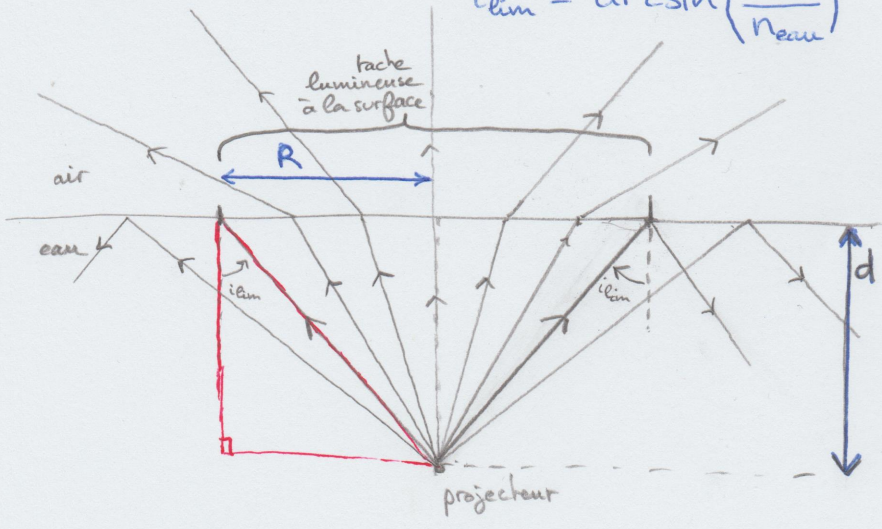 ilim = arcsin(    )
neau
tache
lumineuse
à la surface
R
air
eau
ilim
ilim
d
projecteur